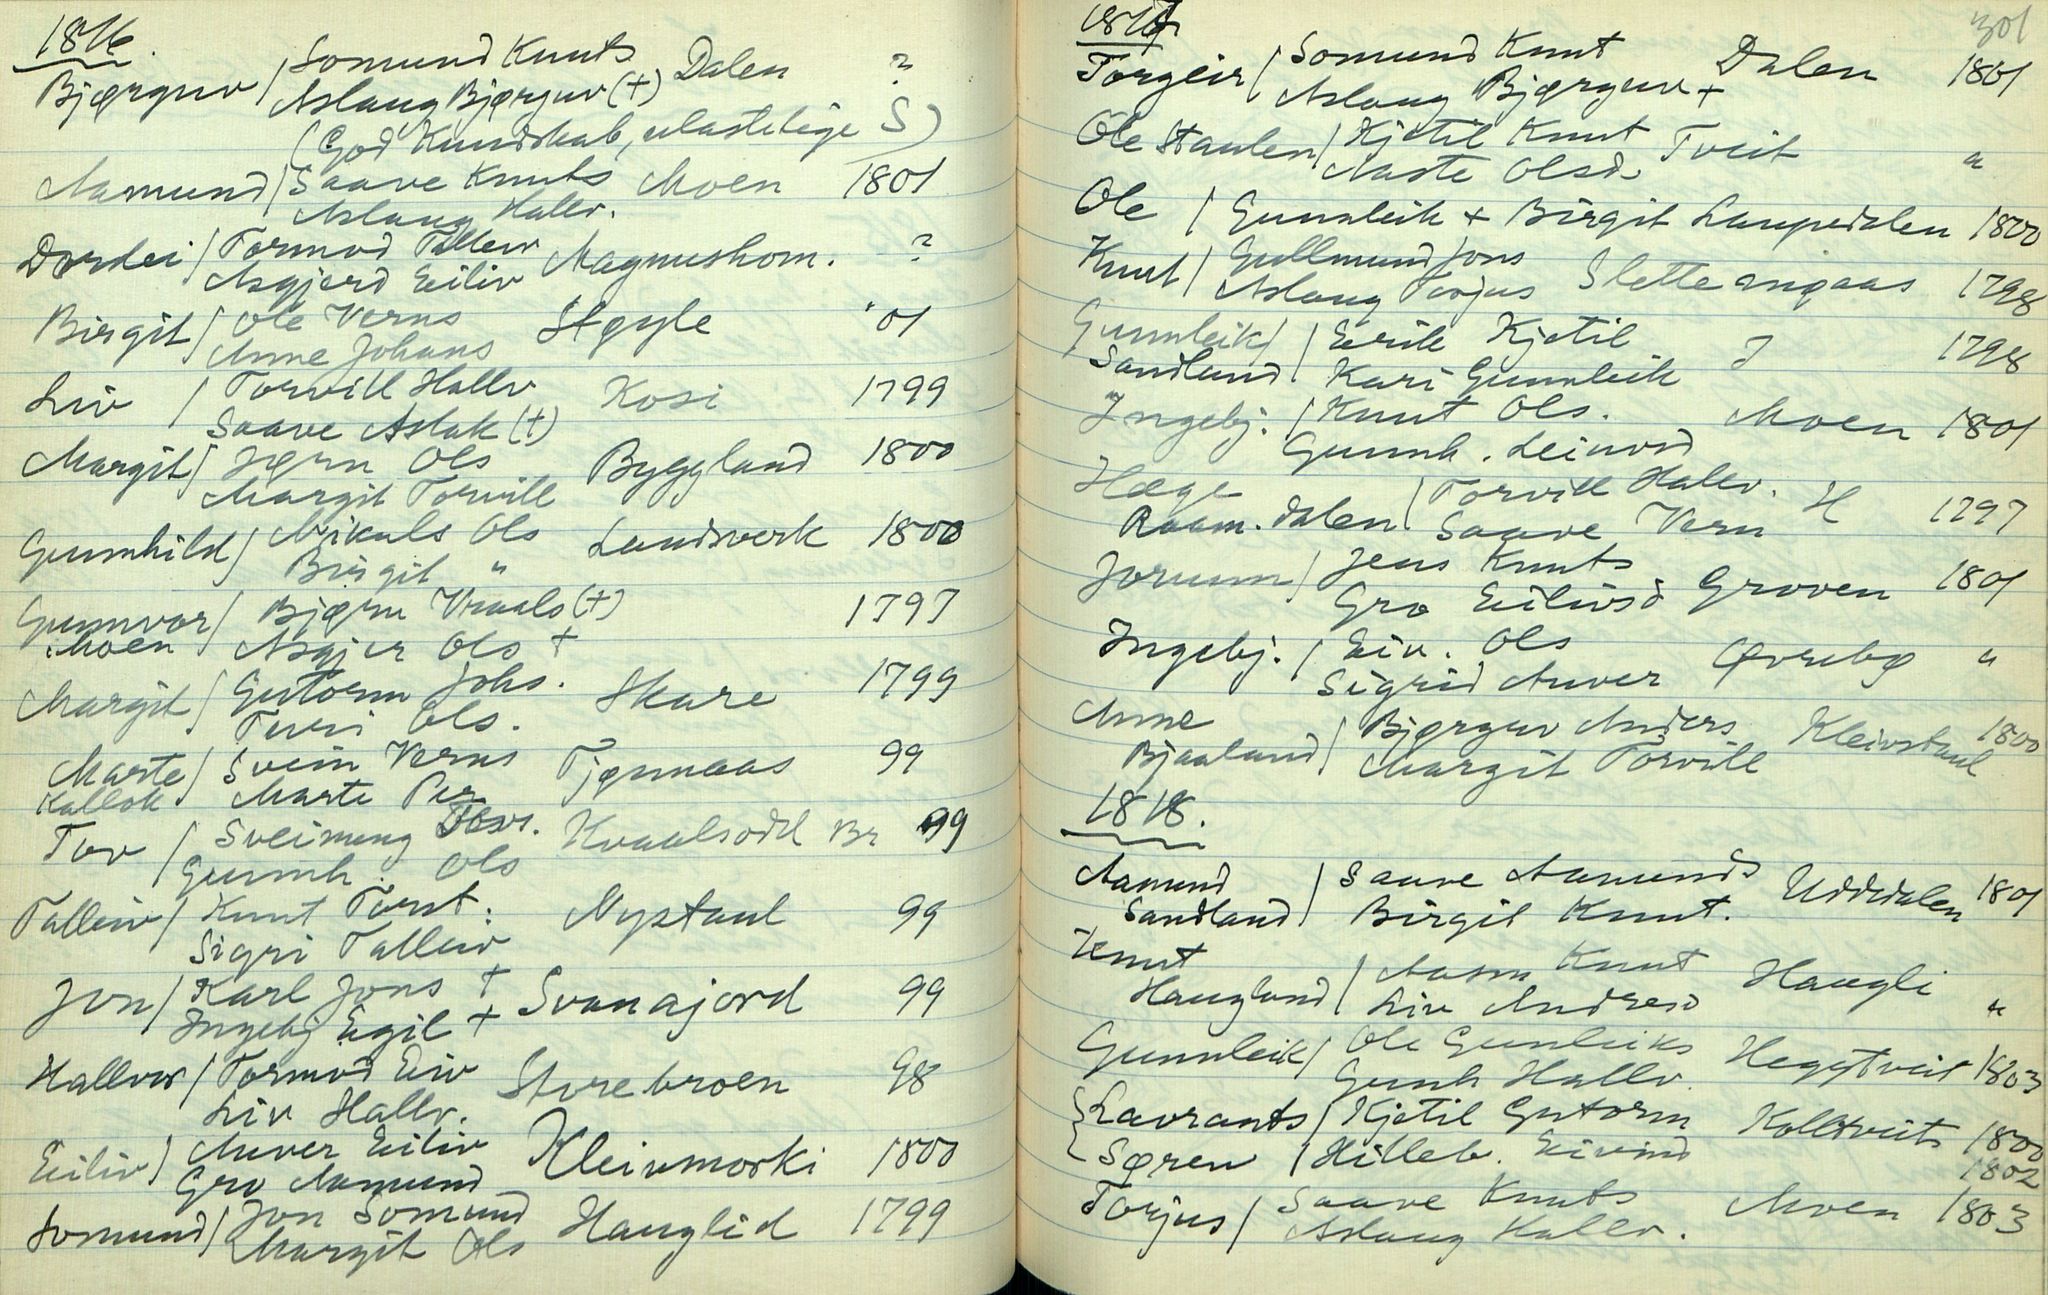 1816.
Bjørguv / Somund Knuts
Aslaug Bjørguv (+) Dalen ?
(God Kundskab, ulastelige S)
Aamund / Saave Knuts Moen 1801
Aslaug Hallv.
Dordei / Tormod Talleiv Magneshom. ?
Asgjerd Eiliv
Birgit / Ole Verns Støyle '01
Anne Johans
Liv / Torvill Hallv Kosi 1799
Saave Aslak (+)
Margit / Jørn Ols Byggland 1800
Margit Torvill
Gunnhild / Nikuls Ols Landsverk 1800
Birgit "
Gunnvor / Bjørn Vraals (+) 1797
Moen / Asgjer Ols +
Margit / Gutorm Johs. Skare 1799
Turi Ols.
Marte / Svein Verns Tjønnaas 99
Kallok Marte Per
Tov / Sveinung Hov. Kvaalsodd Br 99
Gunnh. Ols
Talleiv / Knut Torst. Nystaul 99
Sigri Talleiv
Jon / Karl Jons + Svanajord 99
Ingebj Egil +
Hallvor / Tormod Eiv Storebroen 98
Liv Hallv.
Eiliv / Anver Eiliv Kleivmoski 1800
Gro Aamund
Somund / Jon Somund Hauglid 1799
Margit Ols
1817 301
Torgeir / Somund Knut Dalen 1801
Aslaug Bjørguv +
Ole Staulen / Kjetil Knut Tveit "
Aaste Olsd.
Ole / Gunnleik + Birgit Laupedalen 1800
Knut / Gullmund Jons Slettemgaas 1798
Aslaug Torjus
Gunnleik / Eirik Kjetil J 1798
Sandland / Kari Gunnleik
Ingebj. / Knut Ols. Moen 1801
Gunnh. Leivord
Hæge
Raam. dalen / Torvill Hallv. H 1797
Saave Vern
Jorunn / Jens Knuts Groven 1801
Gro Eilivsd
Ingebj. / Eiv. Ols Øvrebø "
Sigrid Anver
Anne / Bjørguv Anders Kleivstaul 1800
Bjaaland / Margit Torvill
1818.
Aamund / Saave Aamunds Uddedalen 1801
Sandland / Birgit Knut.
Knut
Haugland / Aasm Knut Haugli "
Liv Andresd
Gunnleik / Ole Gunleiks Heggtveit 1803
Gunh Hallv.
{ Lavrants / Kjetil Gutorm Kolltveit 1800
Søren / Hilleb. Eivind 1802
Torjus / Saave Knuts Moen 1803
Aslaug Hallv.